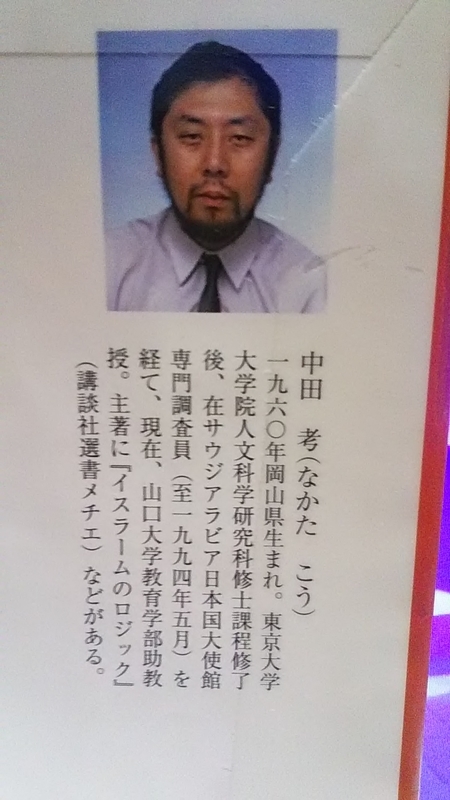 中田　考(なかた　こう)
一九六〇年岡山県生まれ。東京大学
大学院人文科学研究科修士課程修了
後、在サウジアラビア日本国大使館
専門調査員（至一九九四年五月）を
経て、現在、山口大学教育学部助教
授。主著に『イスラームのロジック』
（講談社選書メチエ）などがある。